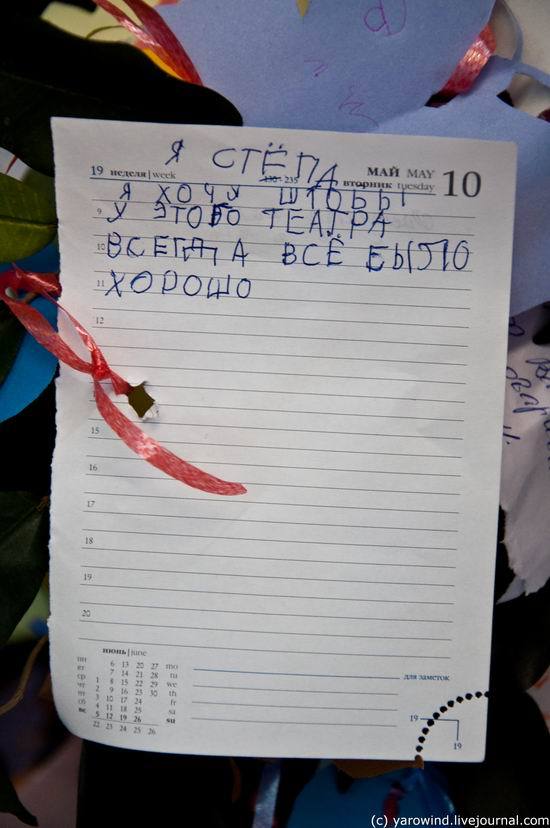 Я СТЁПА
19 неделя | week 130 - 235 МАЙ MAY
вторник tuesday 10
Я ХОЧУ ШТОБЫ
9 У ЭТОГО ТЕАТРА
10 ВСЕГДА ВСЁ БЫЛО
11 ХОРОШО
12
15
16
17
18
19
20
июнь | june
пн 6 13 20 27 mo
вт 7 14 21 28 tu
ср 1 8 15 22 29 we
чт 2 9 16 23 30 th
пт 3 10 17 24 fr
сб 4 11 18 25 sa
вс 5 12 19 26 su
22 23 24 25 26
для заметок
19
19
(c) yarowind.livejournal.com